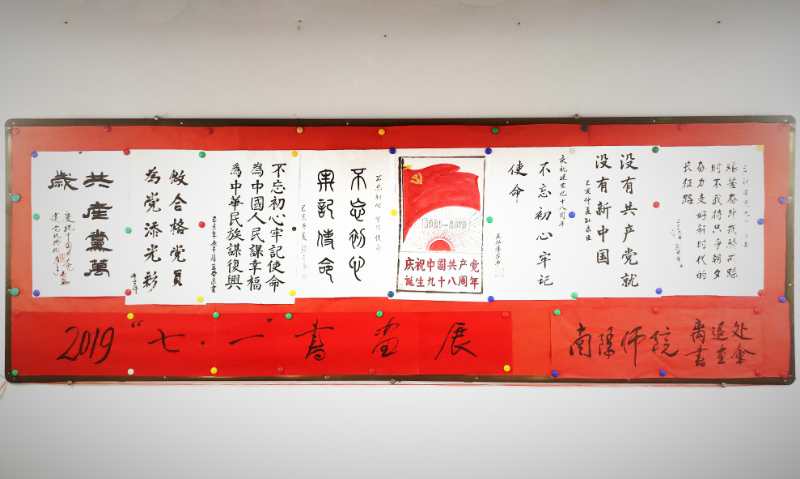 艰苦奋斗我吃苦
时不我待只争朝夕
奋力走好新时代的
长征路
没有共产党就
没有新中国
庆祝建党九十八周年
不忘初心牢记
使命
1921-2019
庆祝中国共产党
诞生九十八周年
不忘初心
牢记使命
不忘初心牢記使命
為中國人民謀幸福
為中華民族謀復興
做合格党員
為党添光彩
共產黨萬
歲
2019“七·一”書画展
南陽师院离退处
書画会